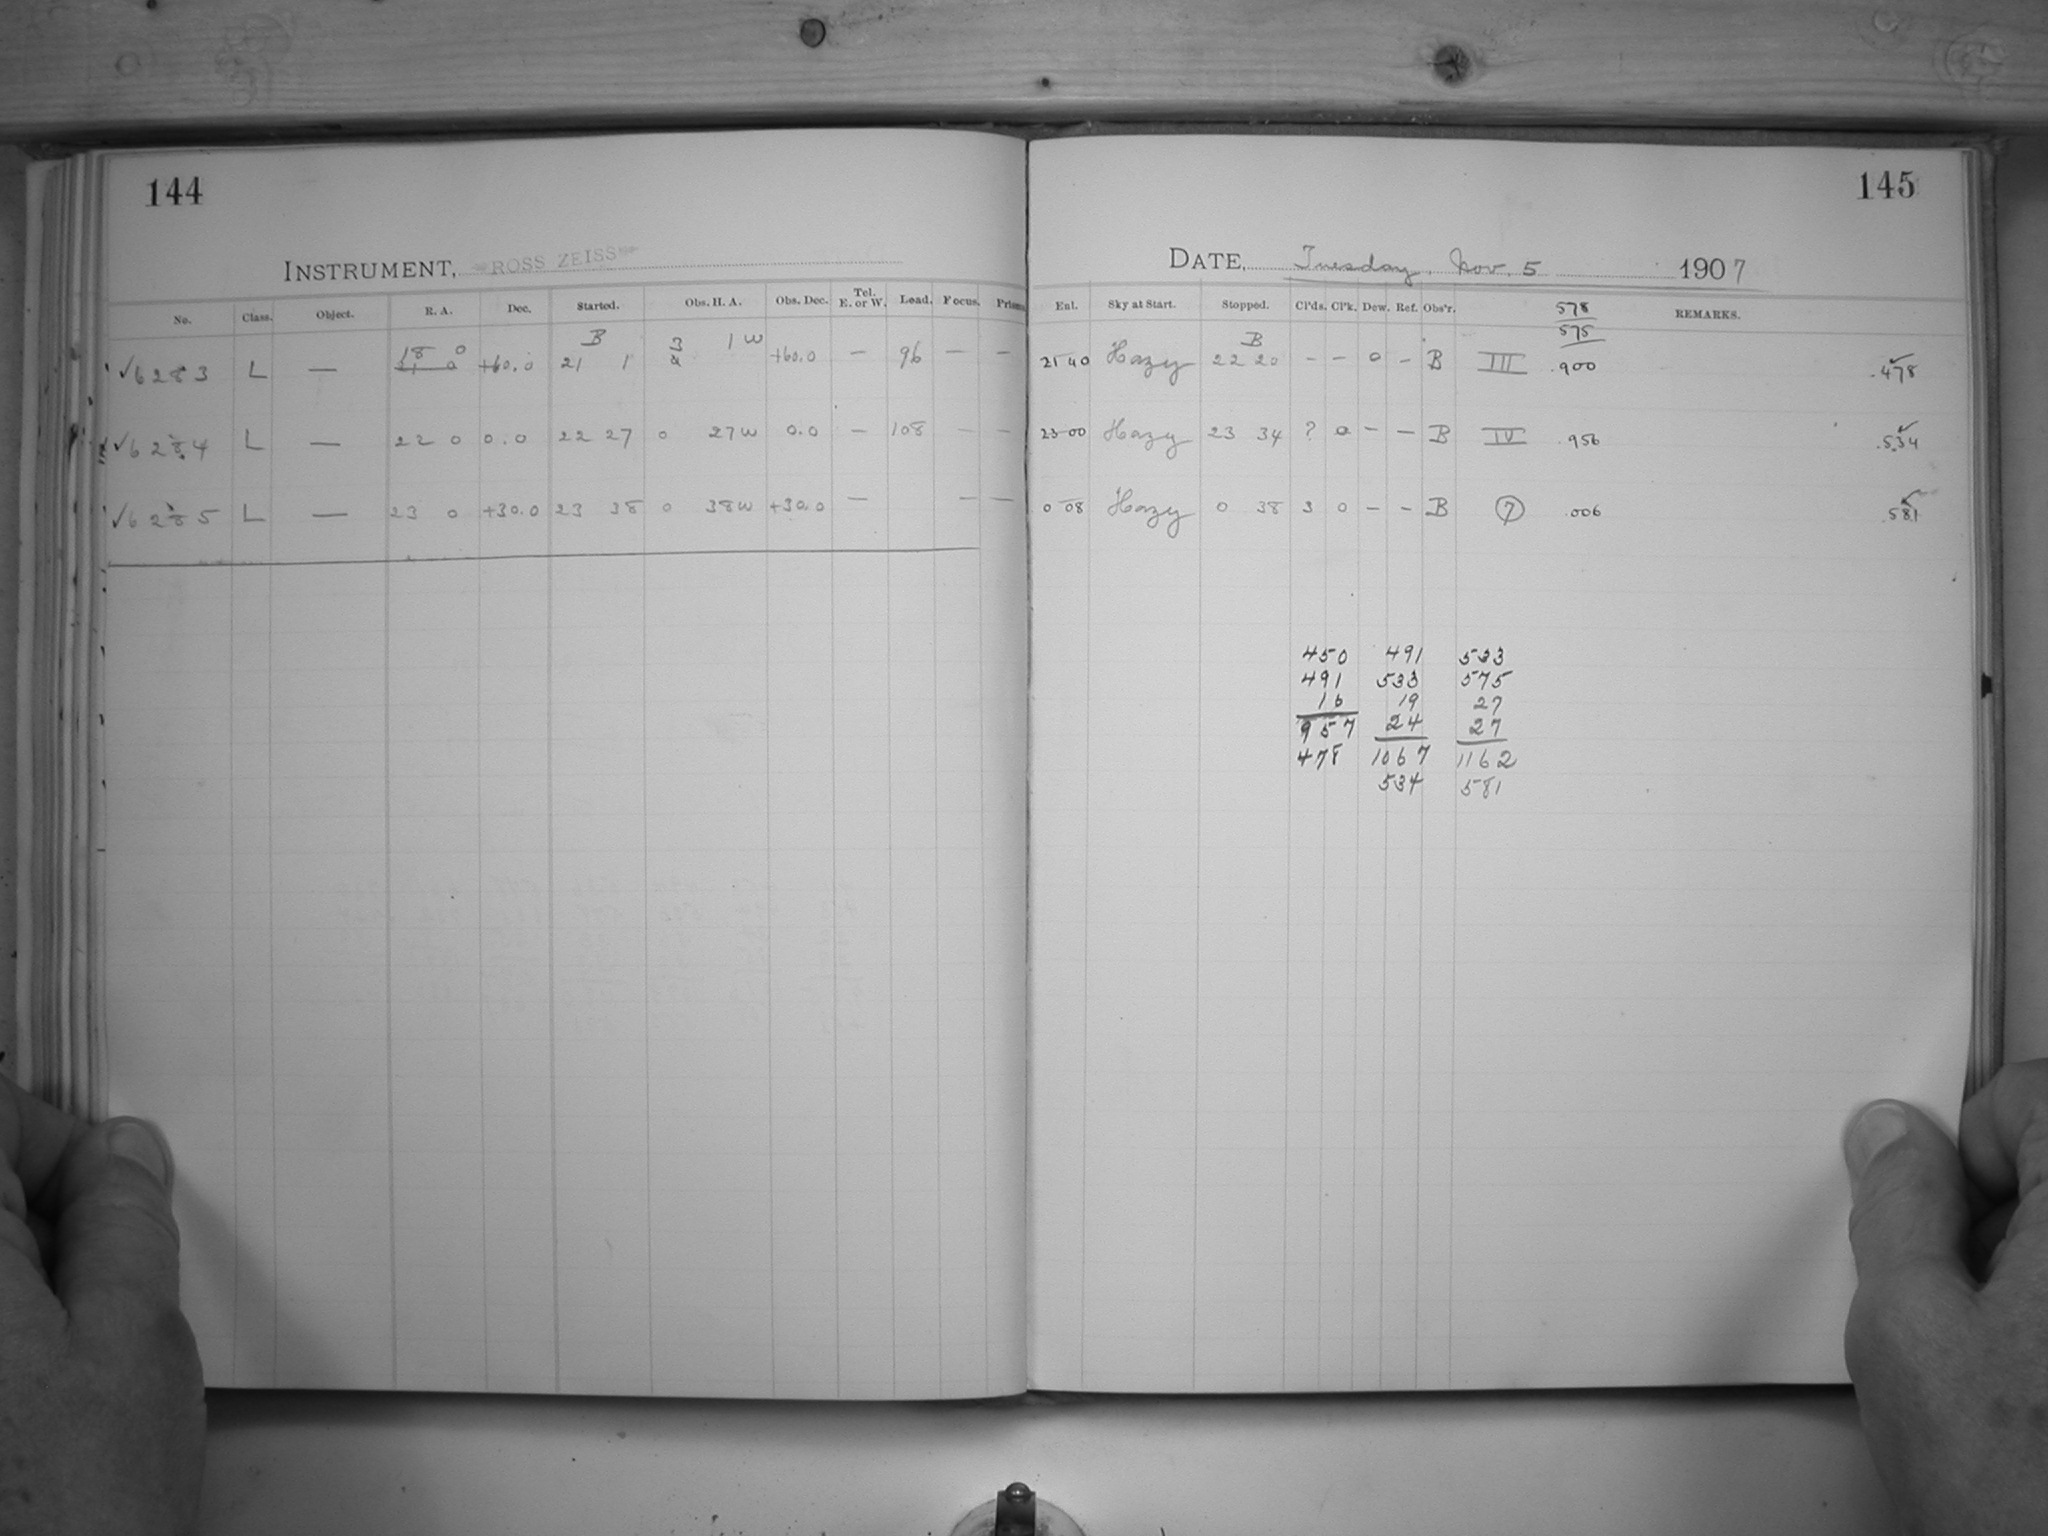 144
INSTRUMENT, ROSS ZEISS
No. Class. Object. R. A. Dec. Started. Obs. H. A. Obs. Dec. Tel. E. or W. Lead. Focus. Prism
B
18 0 3 1 W
✓6283 L — 21 0 +60.0 21 1 +60.0 — 96 — —
✓6284 L — 22 0 0.0 22 27 0 27W 0.0 — 108 — —
✓6285 L — 23 0 +30.0 23 38 0 38W +30.0 — — —
145
DATE, Tuesday, Nov. 5 1907
Ent. Sky at Start. Stopped. Cl'ds. Cl'k. Dew. Ref. Obs'r. REMARKS.
578
575
B
21 40 Hazy 22 20 – – 0 – B III .900 .478
23 00 Hazy 23 34 ? 0 – – B IV .956 .534
0 08 Hazy 0 38 3 0 – – B 7 .006 .581
450 491 533
491 533 575
16 19 27
957 24 27
478 1067 1162
534 581